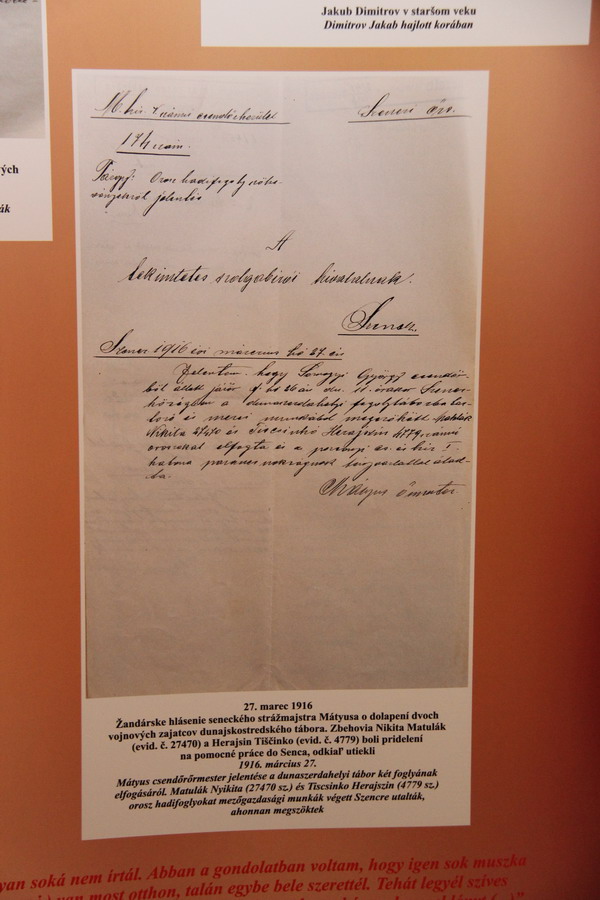 Jakub Dimitrov v staršom veku
Dimitrov Jakab hajlott korában
ých
ák
M. kir. számú csendőrkerület
Szenczi őrs.
174 szám.
Tárgy: Orosz hadifogoly
jelentés
A
tekintetes szolgabirói hivatalnak.
Szencz.
Szencz 1916 évi március hó 27 én
Jelentem hogy György csendőr-
ből állott járőr f. hó 26 án du. 11 órakor Szencz
községben a dunaszerdahelyi fogolytáborba tar-
tozó és mezei munkából megszökött Matulák
Nikita 27470 és Tiscsinkó Herajszin 4779 számú
oroszokat elfogta és a pozsonyi cs. és kir.
katona parancsnokságnak átad-
ta.
Mátyus őrmester
27. marec 1916
Žandárske hlásenie seneckého strážmajstra Mátyusa o dolapení dvoch
vojnových zajatcov dunajskostredského tábora. Zbehovia Nikita Matulák
(evid. č. 27470) a Herajsin Tiščinko (evid. č. 4779) boli pridelení
na pomocné práce do Senca, odkiaľ utiekli
1916. március 27.
Mátyus csendőrőrmester jelentése a dunaszerdahelyi tábor két foglyának
elfogásáról. Matulák Nyikita (27470 sz.) és Tiscsinko Herajszin (4779 sz.)
orosz hadifoglyokat mezőgazdasági munkák végett Szencre utalták,
ahonnan megszöktek
yan soká nem írtál. Abban a gondolatban voltam, hogy igen sok muszka
van most otthon, talán egybe bele szerettél. Tehát legyél szíves